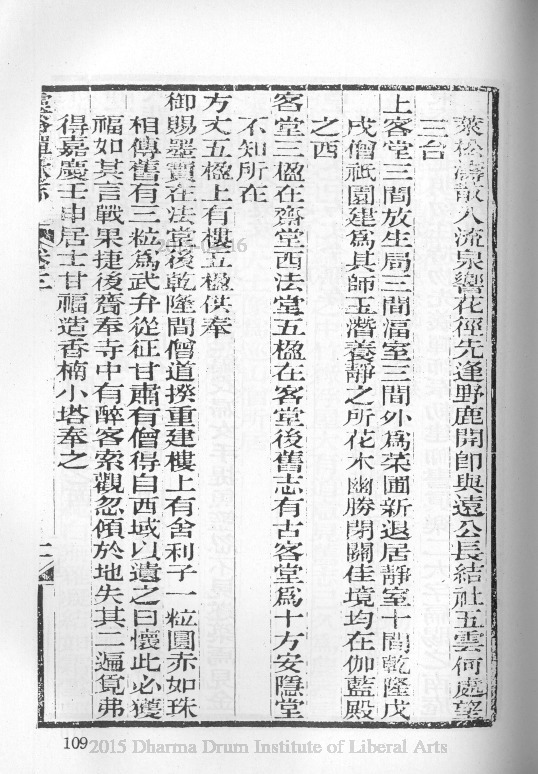 萊松濤散入流泉響花徑先逢野鹿開即與遠公長結社五雲何處望
三台
上客堂三間放生局三間湢室三間外為菜圃新退居靜室十間乾隆戊
戌僧祇園建為其師玉潛養靜之所花木幽勝閉關佳境均在伽藍殿
之西
客堂三楹在齋堂西法堂五楹在客堂後舊志有古客堂為十方安隱堂
不知所在
方丈五楹上有樓五楹供奉
御賜墨寶在法堂後乾隆間僧道揆重建樓上有舍利子一粒圓赤如珠
相傳舊有三粒為武弁從征甘肅有僧得自西域以遺之曰懷此必獲
福如其言戰果捷後齎奉寺中有醉客索觀忽傾於地失其二遍覓弗
得嘉慶壬申居士甘福造香楠小塔奉之
卷之二
109
2015 Dharma Drum Institute of Liberal Arts